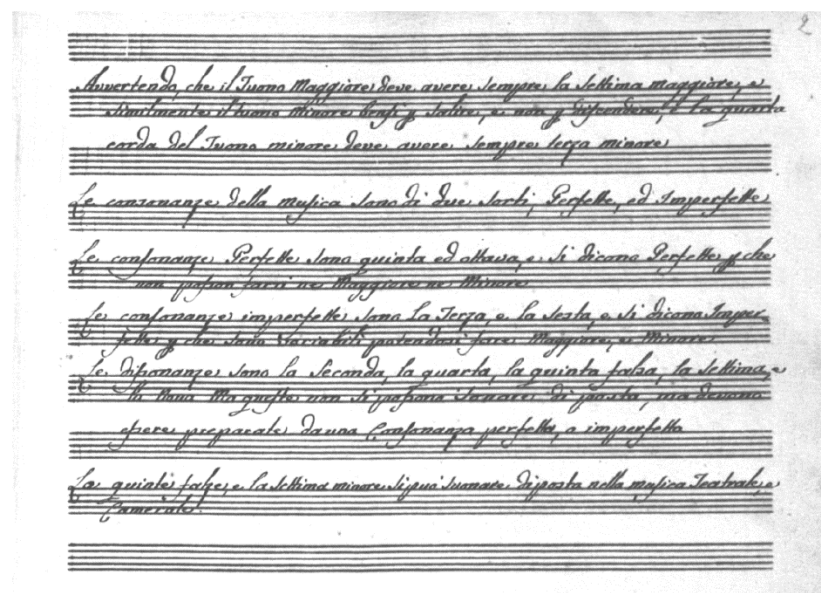 2
Avvertendo, che il Tuono Maggiore deve avere sempre la Settima maggiore, e
similmente il tuono Minore bensi p salire, e non p discendere, e la quarta
corda del Tuono minore deve avere sempre terza minore
Le consonanze della musica sono di due sorti, Perfette, ed Imperfette
Le consonanze Perfette sono quinta ed ottava, e si dicono Perfette p che
non posson farsi ne Maggiore ne Minore
Le consonanze imperfette sono la Terza, e la sesta, e si dicono Imper-
fette p che sono Variabili potendosi fare Maggiore, e Minore
Le dissonanze sono la Seconda, la quarta, la quinta falsa, la settima, e
la Nona Ma queste non si possono suonare di posta, ma devono
essere preparate da una Consonanza perfetta, o imperfetta
La quinta falsa, e la settima minore si può suonare di posta nella musica Teatrale, e
Camerale.